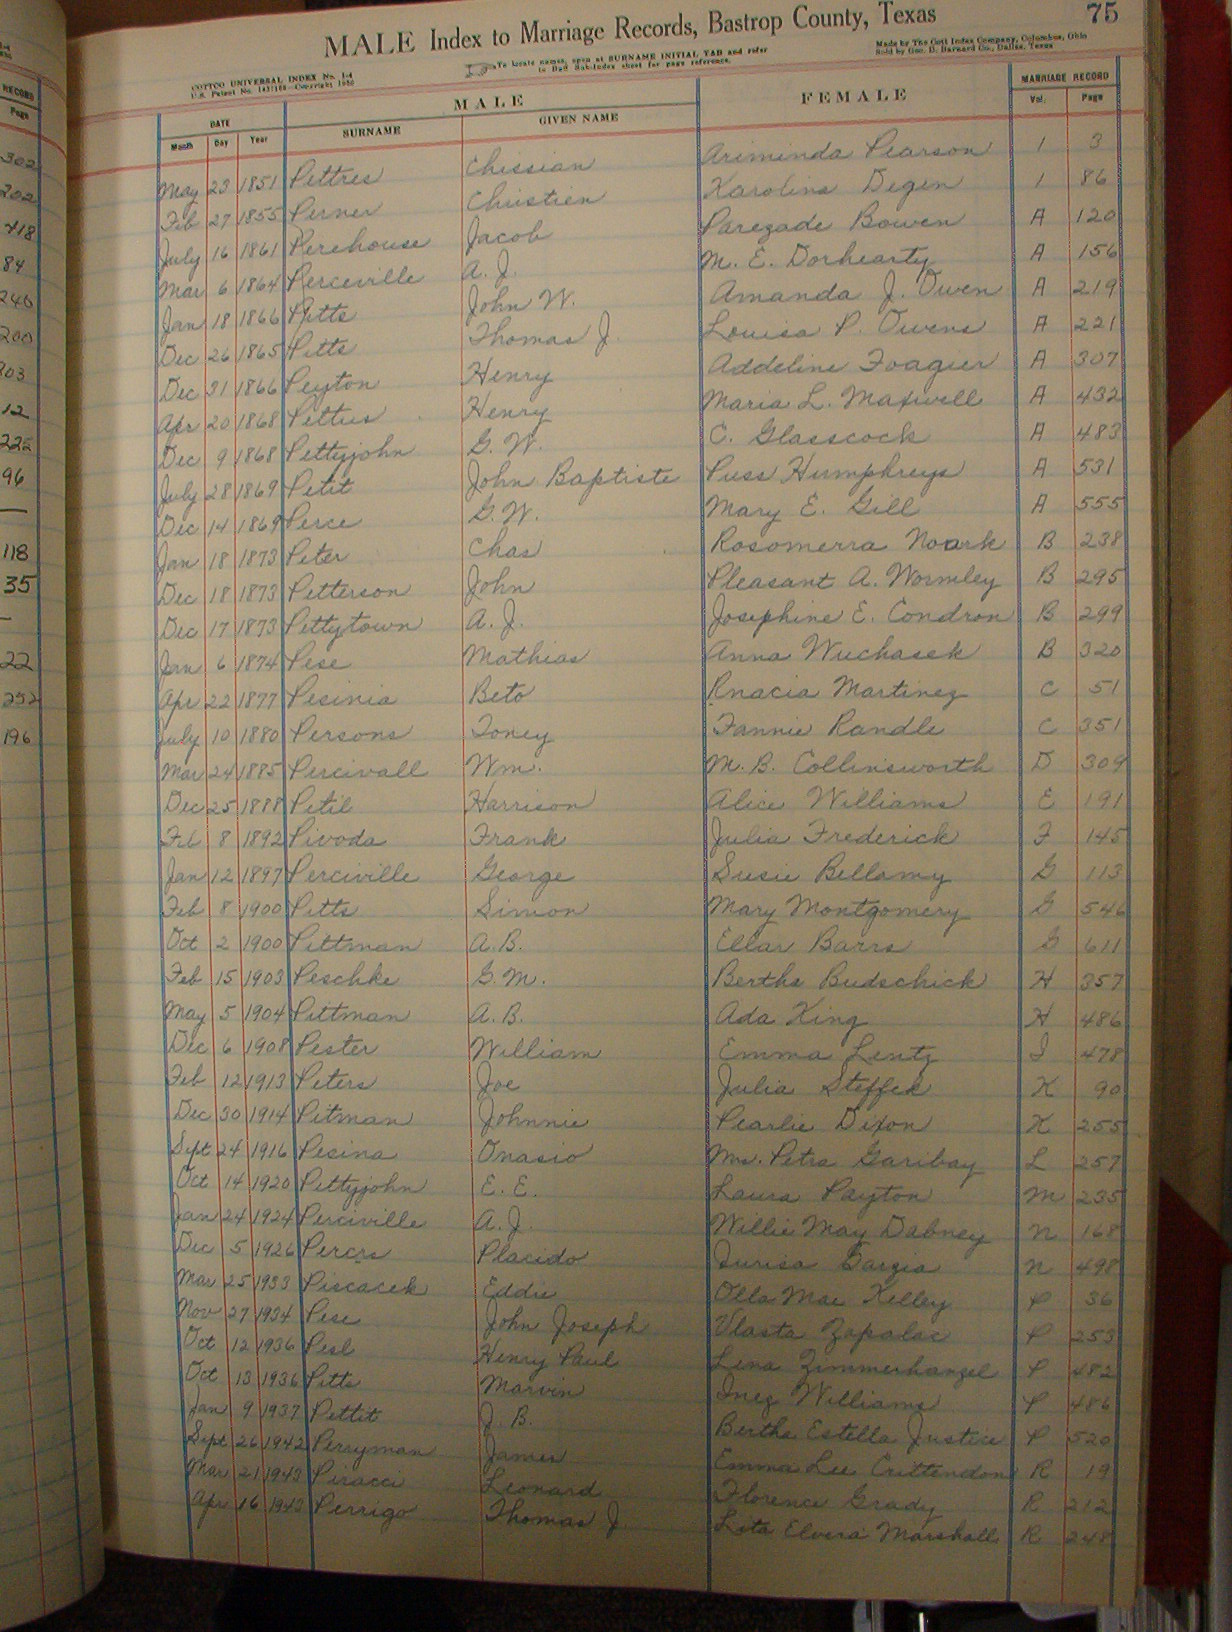 MALE Index to Marriage Records, Bastrop County, Texas 75
COTTCO UNIVERSAL INDEX No. 1-4
U.S. Patent No. Copyright
To locate names, open at SURNAME INITIAL TAB and refer
to Buff Sub-Index sheet for page reference.
Made by The Cott Index Company, Columbus, Ohio
Sold by Geo. D. Barnard Co., Dallas, Texas
DATE MALE FEMALE MARRIAGE RECORD
Month Day Year SURNAME GIVEN NAME Vol. Page
May 23 1851 Pettres Chissian Ariminda Pearson 1 3
Feb 27 1855 Perner Christien Karolina Degen 1 86
July 16 1861 Perehouse Jacob Paregade Bowen A 120
Mar 6 1864 Perceville A. J. M. E. Dorhearty A 156
Jan 18 1866 Pitts John W. Amanda J. Owen A 219
Dec 26 1865 Pitts Thomas J. Louisa P. Owens A 221
Dec 31 1866 Peyton Henry Addeline Foagier A 307
Apr 20 1868 Pettus Henry Maria L. Maxwell A 432
Dec 9 1868 Pettyjohn G. W. C. Glasscock A 483
July 28 1869 Petit John Baptiste Puss Humphreys A 531
Dec 14 1869 Perce G. W. Mary E. Gill A 555
Jan 18 1873 Peter Chas Rosomerra Noark B 238
Dec 18 1873 Petterson John Pleasant A. Wormley B 295
Dec 17 1873 Pettytown A. J. Josephine E. Condron B 299
Jan 6 1874 Pese Mathias Anna Wuchasek B 320
Apr 22 1877 Pesinia Beto Rnacia Martinez C 51
July 10 1880 Persons Toney Fannie Randle C 351
Mar 24 1885 Percivall Wm. M. B. Collinsworth D 309
Dec 25 1888 Petil Harrison Alice Williams E 191
Feb 8 1892 Pivoda Frank Julia Frederick F 145
Jan 12 1897 Perciville George Susie Bellamy G 113
Feb 8 1900 Pitts Simon Mary Montgomery G 546
Oct 2 1900 Pittman A. B. Ellar Barrs G 611
Feb 15 1903 Peschke G. M. Bertha Budschick H 357
May 5 1904 Pittman A. B. Ada King H 486
Dec 6 1908 Pester William Emma Lentz I 478
Feb 12 1913 Peters Joe Julia Steffek K 90
Dec 30 1914 Pitman Johnnie Pearlie Dixon K 255
Sept 24 1916 Pesina Onasio Mrs. Petra Garibay L 257
Oct 14 1920 Pettyjohn E. E. Laura Payton M 235
Jan 24 1924 Perciville A. J. Willie May Dabney N 168
Dec 5 1926 Percrs Placido Iurisa Garzia N 498
Mar 25 1933 Piscacek Eddie Olla Mae Kelley P 36
Nov 27 1934 Pese John Joseph Vlasta Zapalac P 253
Oct 12 1936 Pesl Henry Paul Lena Zimmerhanzel P 482
Oct 13 1936 Pitts Marvin Inez Williams P 486
Jan 9 1937 Pettit J. B. Bertha Estella Justice P 520
Sept 26 1942 Perryman James Emma Lee Crittendon R 19
Mar 21 1943 Piracci Leonard Florence Grady R 212
Apr 16 1943 Perrigo Thomas J. Lita Elvera Marshall R 248
RECORD
Page
302
202
418
84
240
200
303
12
225
96
118
35
22
252
196